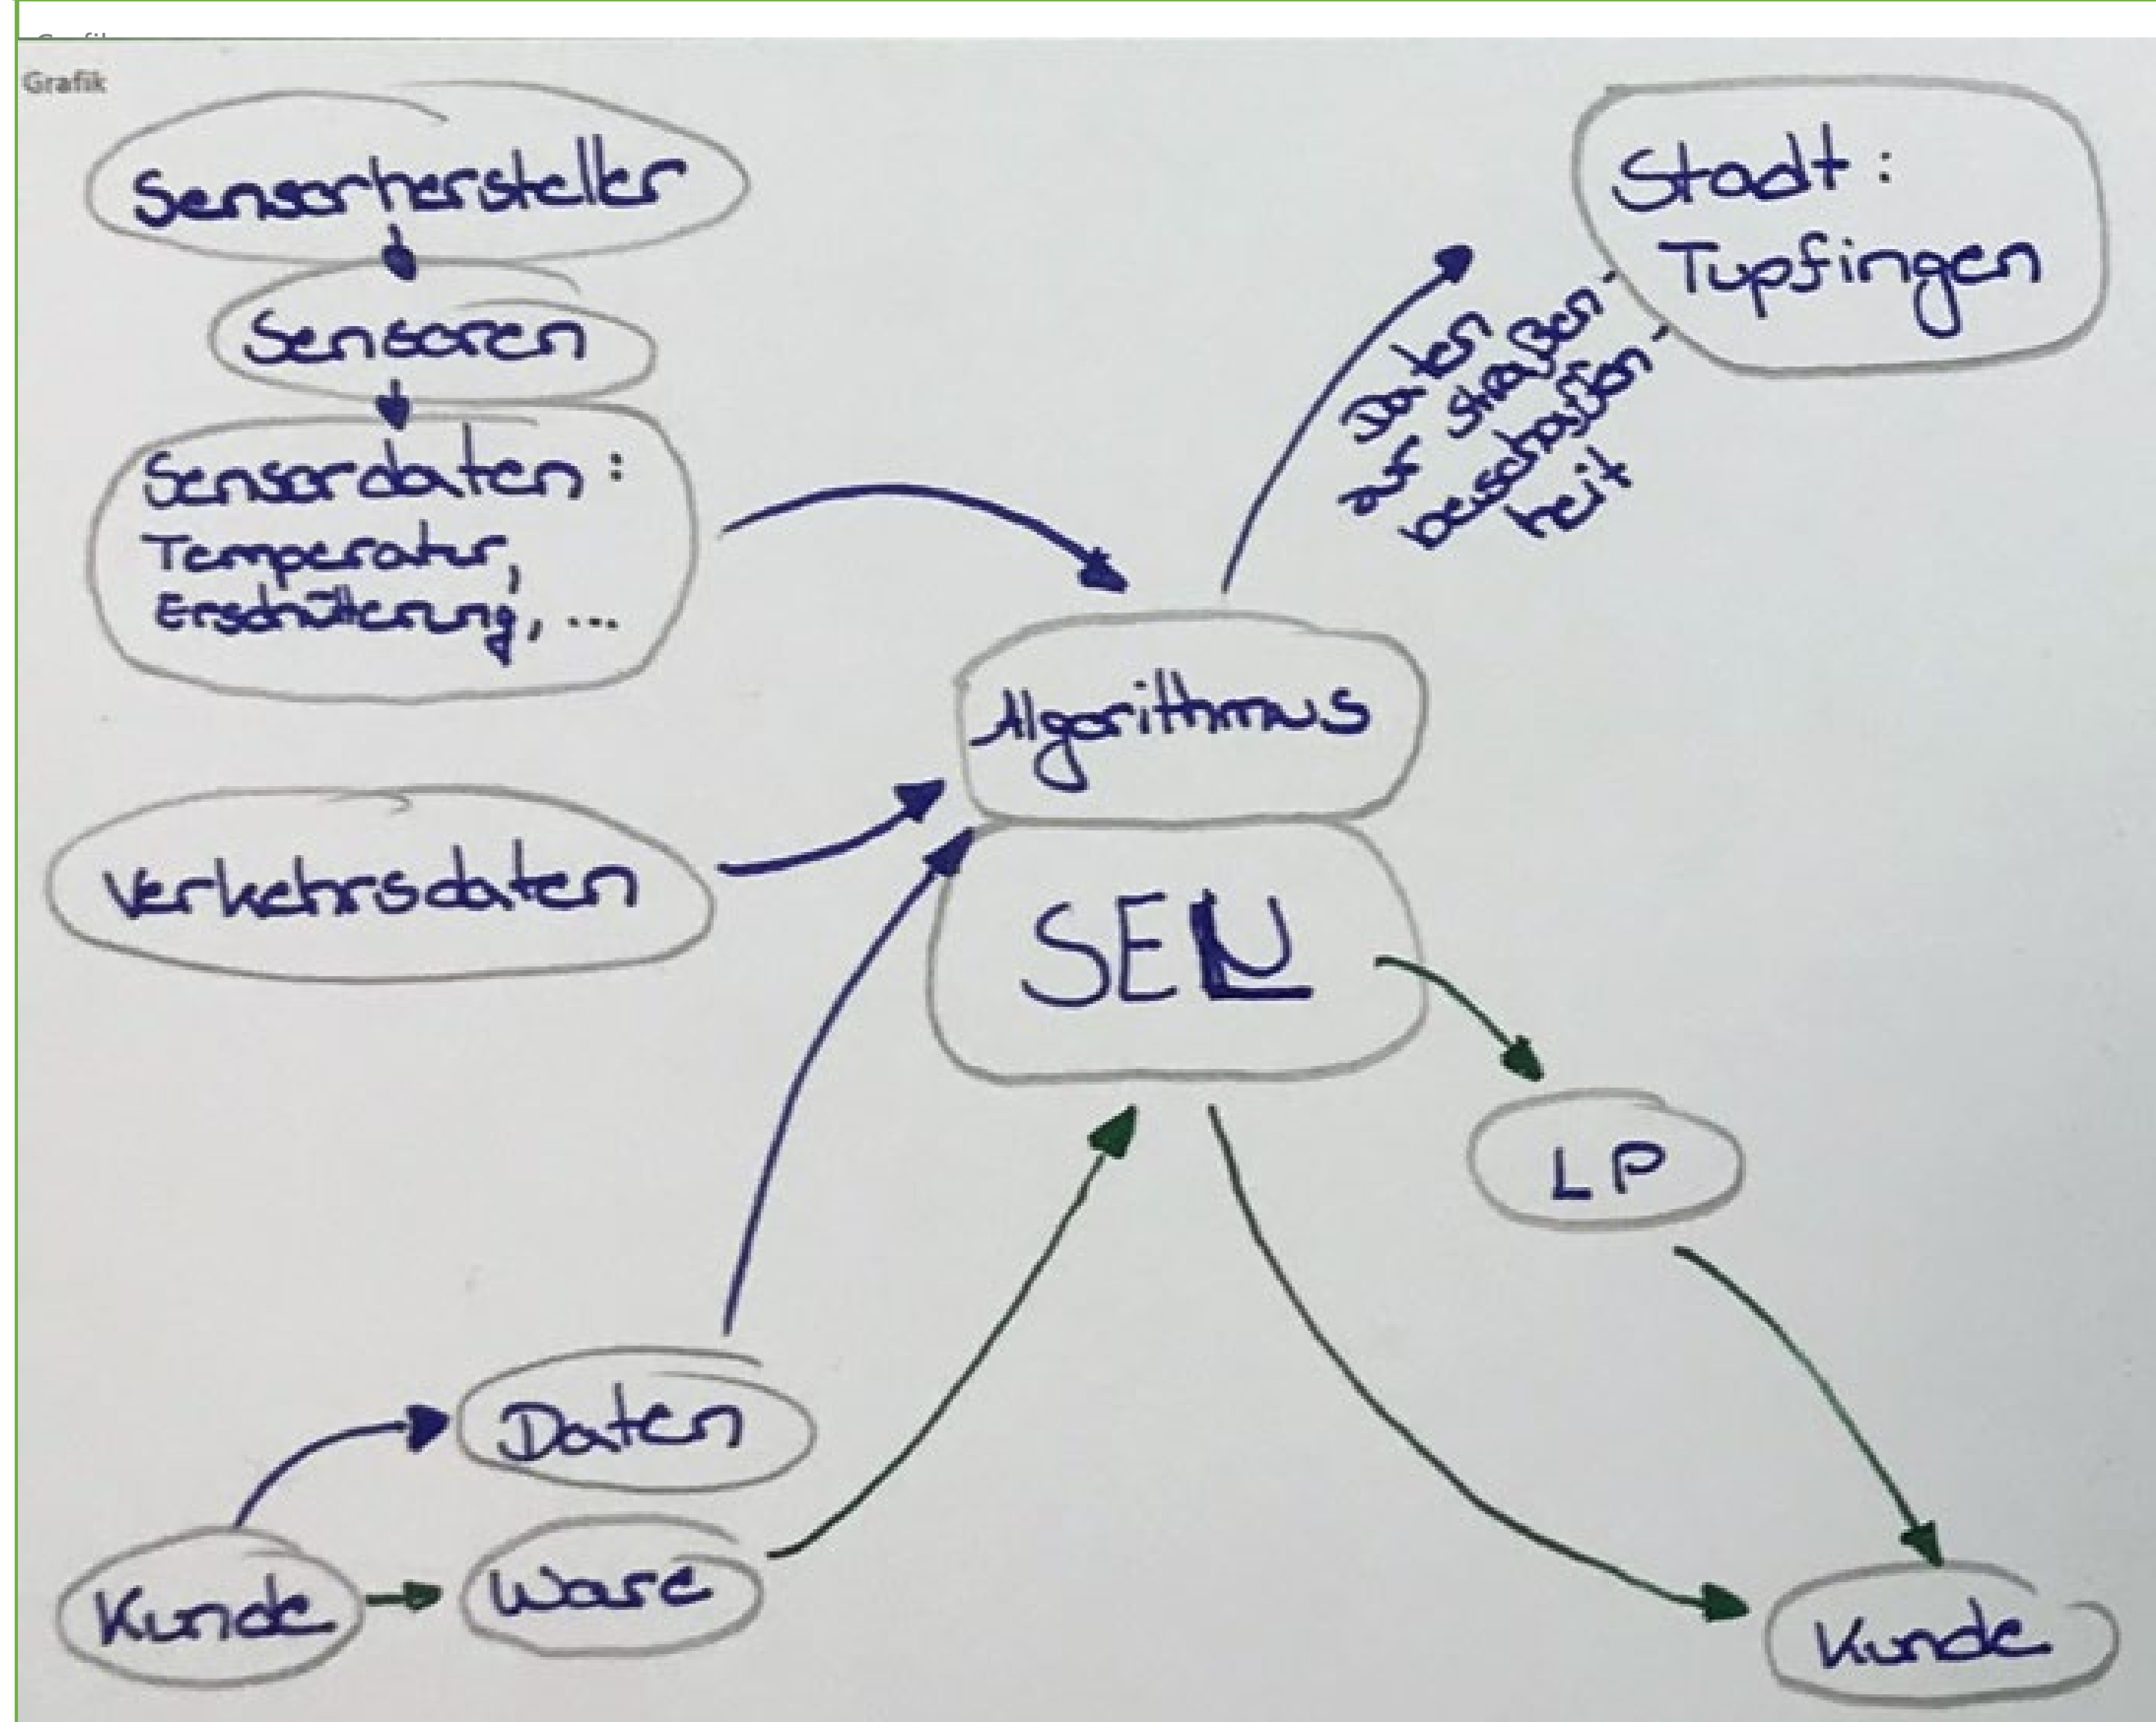 Grafik
Sensorhersteller
Sensoren
Sensordaten:
Temperatur,
Erschütterung, ...
Verkehrsdaten
Stadt:
Tupfingen
Daten
auf Straßen-
beschaffen-
heit
Algorithmus
LP
Daten
Kunde
Ware
Kunde